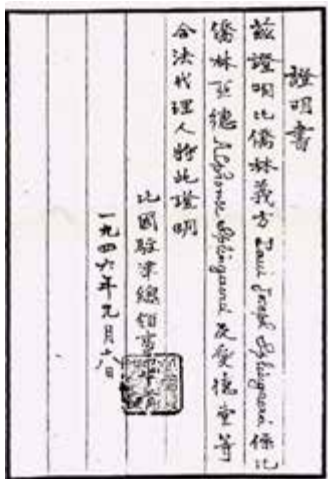 證明書
茲證明比僑林義方 Paul Joseph Splingaerd 係比
僑林亞德 Alphonse Splingaerd 及愛德堂等
合法代理人特此證明
比國駐津總領事
一九四六年九月十八日